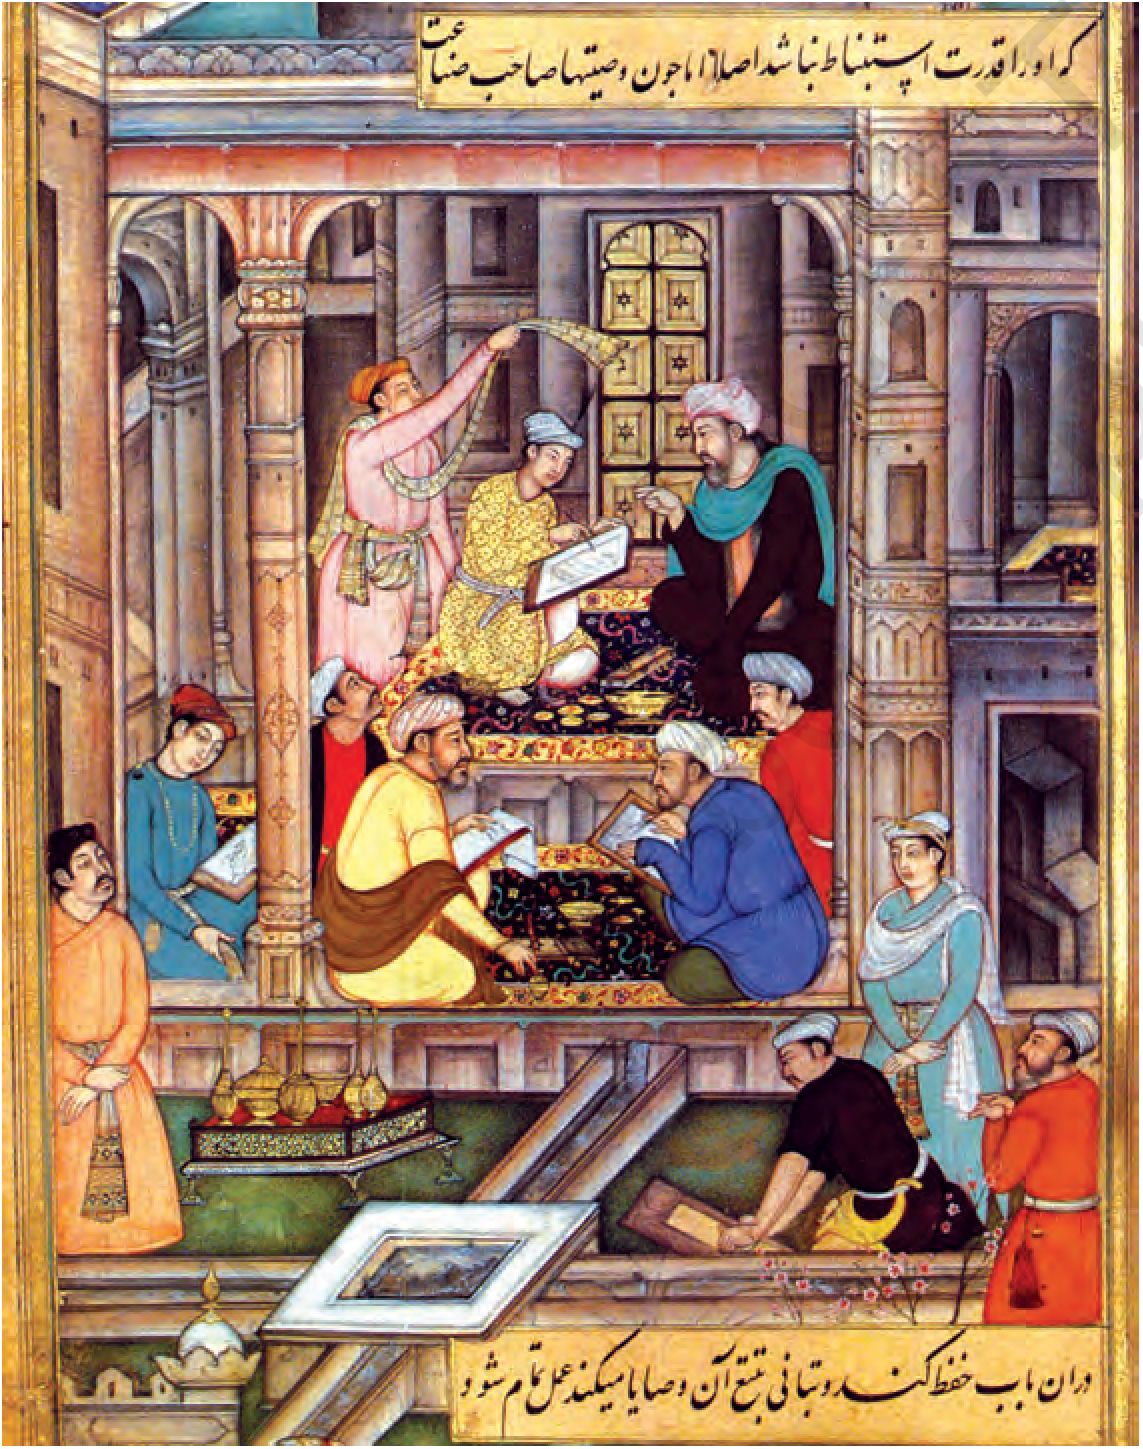 که او را قدرت استنباط نباشد اصلا اما چون وصیتها صاحب صناعت
دران باب حفظ کند و تبانی بتتبع آن وصایا میکند عمل تمام شود